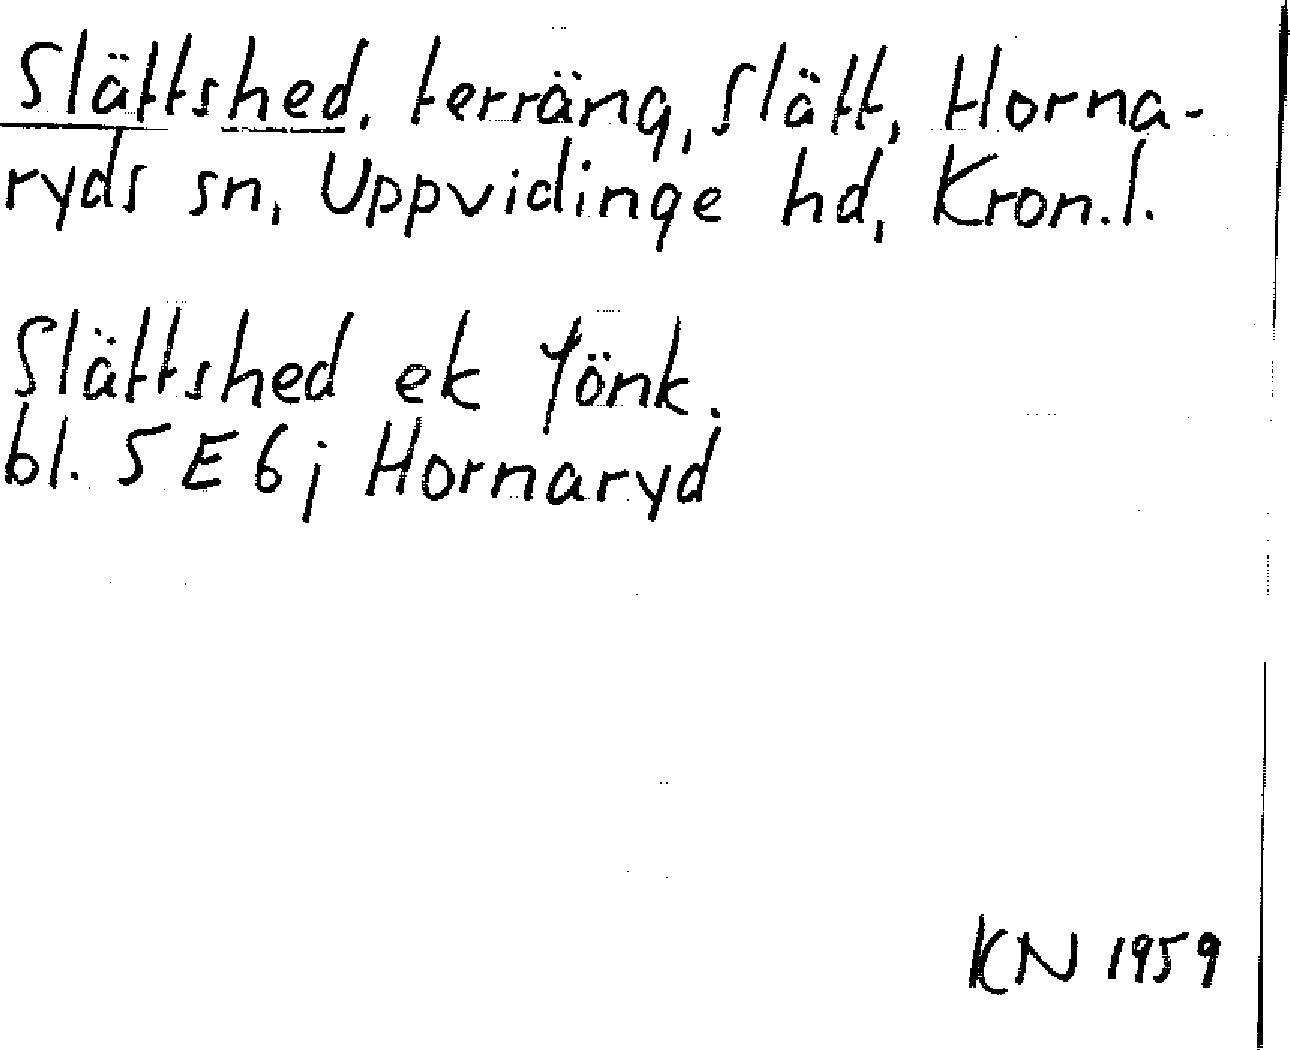 Slättshed, terräng, Slätt, Horna-
ryds sn, Uppvidinge hd, Kron.l.
Slättshed ek Jönk.
bl. 5 E 6 j Hornaryd
KN 1959